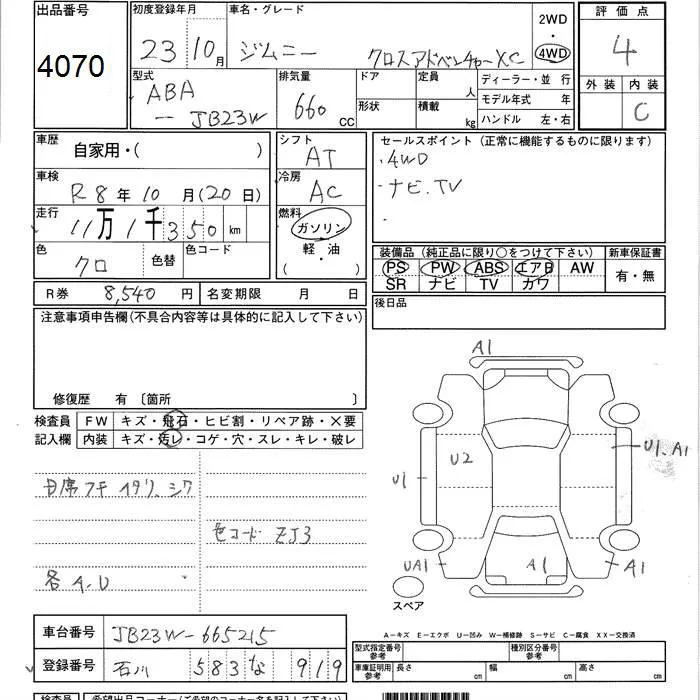 出品番号
4070
初度登録年月 23年10月
車名・グレード ジムニー クロスアドベンチャーXC
2WD・4WD
評価点 4
外装 内装 C
型式 ABA-JB23W
排気量 660 cc
ドア 定員 人
形状 積載 kg
ディーラー・並行
モデル年式 年
ハンドル 左・右
車歴 自家用・( )
シフト AT
セールスポイント(正常に機能するものに限ります)
・4WD
・ナビ.TV
・
車検 R8年10月(20日)
冷房 AC
走行 11万1千350km
燃料 ガソリン 軽・油 ( )
色 クロ 色替 色コード
装備品(純正品に限り○をつけて下さい) 新車保証書
PS PW ABS エアB AW 有・無
SR ナビ TV カワ
R券 8,540円 名変期限 月 日
後日品
注意事項申告欄(不具合内容等は具体的に記入して下さい)
修復歴 有〔箇所 〕
検査員 FW キズ・飛石・ヒビ割・リペア跡・×要
記入欄 内装 キズ・汚レ・コゲ・穴・スレ・キレ・破レ
A1
U2
U1
U1、A1
UA1
A1
A1
スペア
色コード ZJ3
各A.U
車台番号 JB23W-665215
登録番号 石川 583 な 919
A-キズ E-エクボ U-凹み W-補修跡 S-サビ C-腐食 XX-交換済
型式指定番号 参考 種別区分番号 参考
車庫証明用 参考 長さ cm 幅 cm 高さ cm